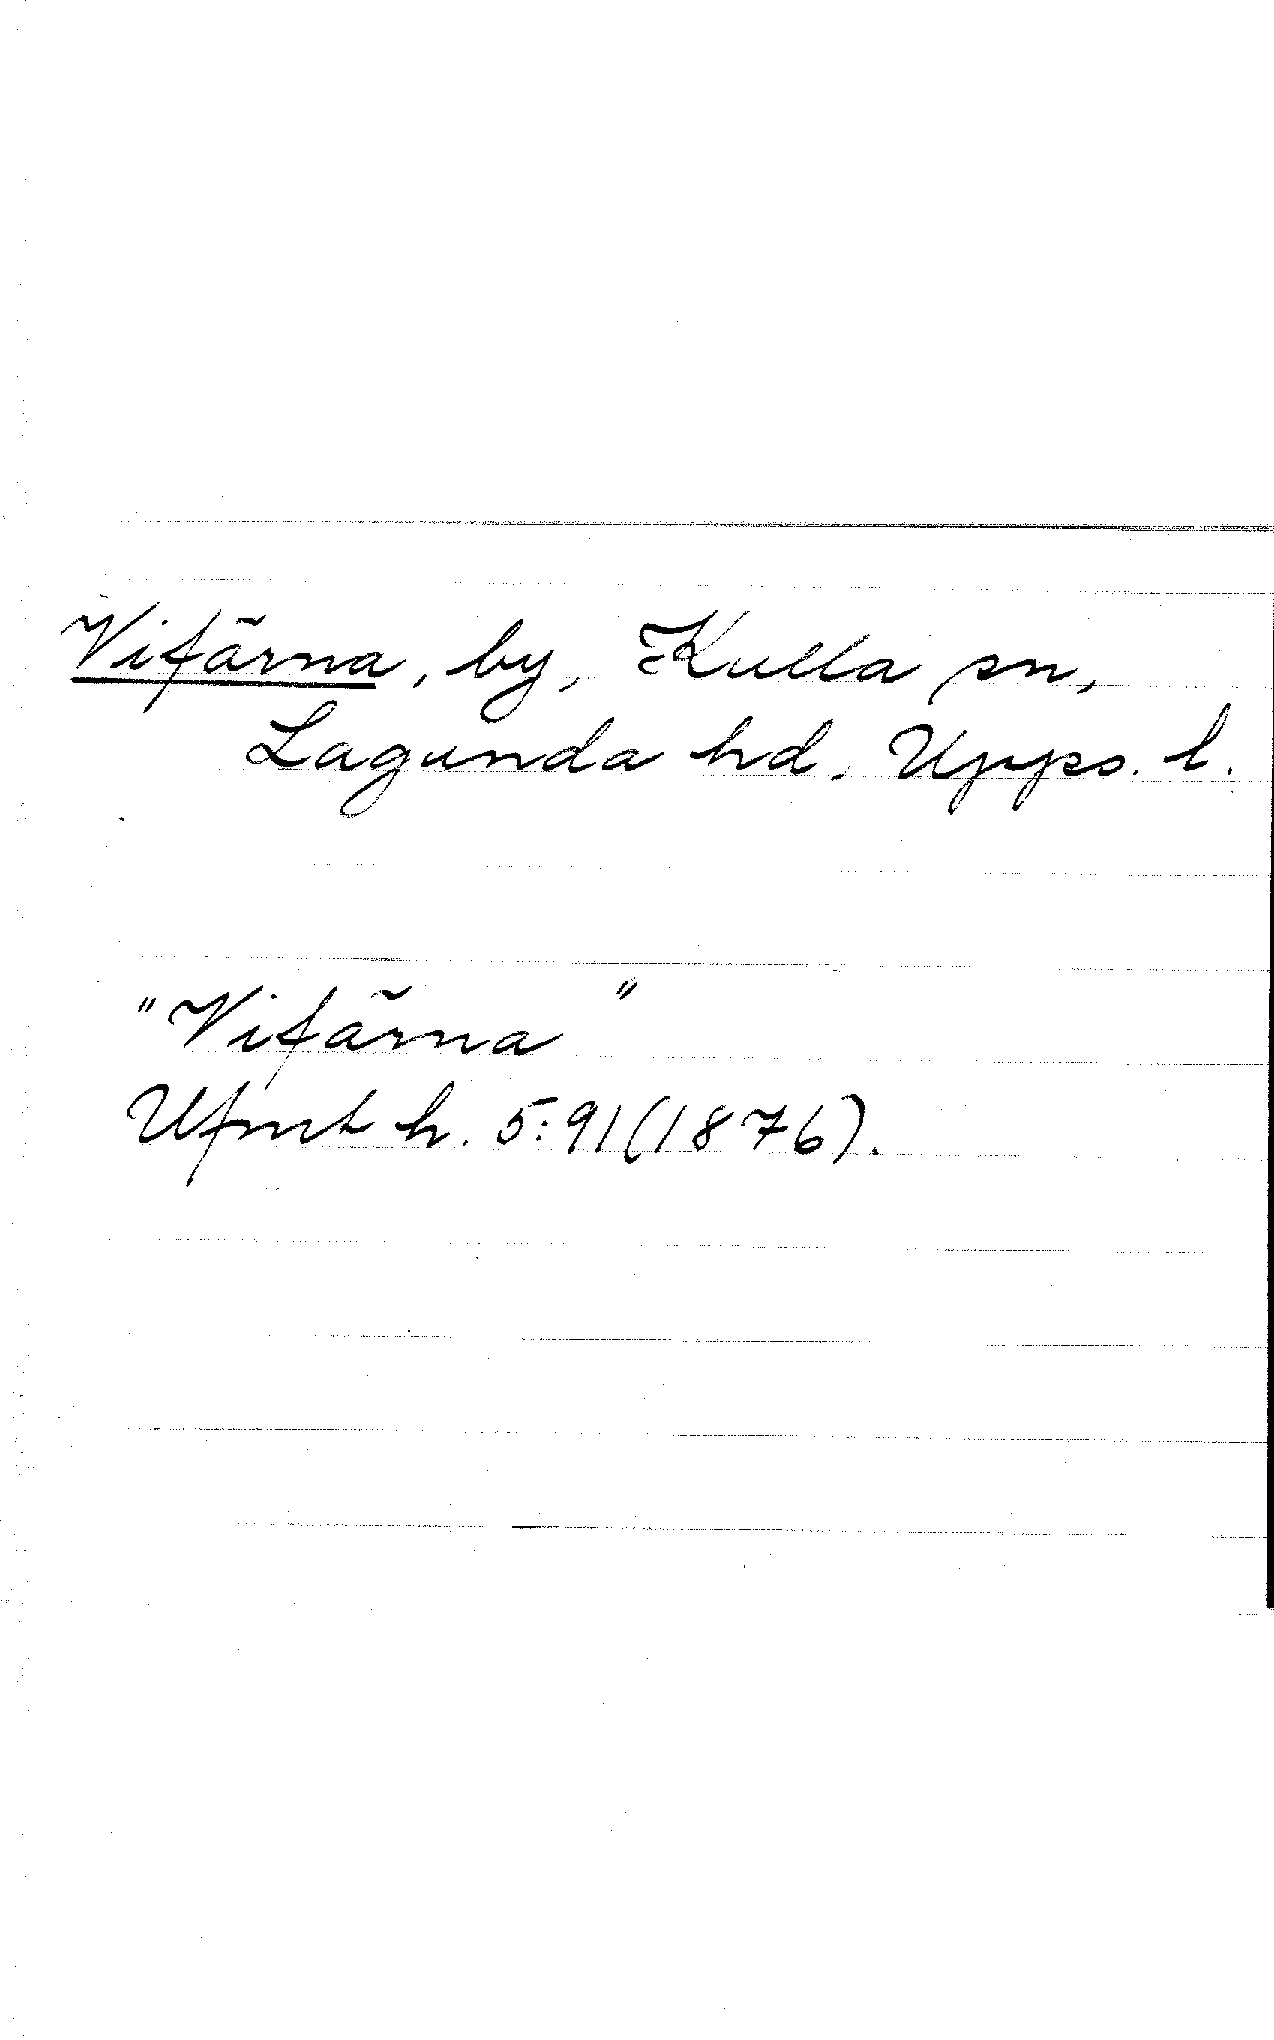 Vifärna, by, Kulla sn,
Lagunda hd. Upps. l.
"Vifärna"
Ufmt h. 5:91(1876).